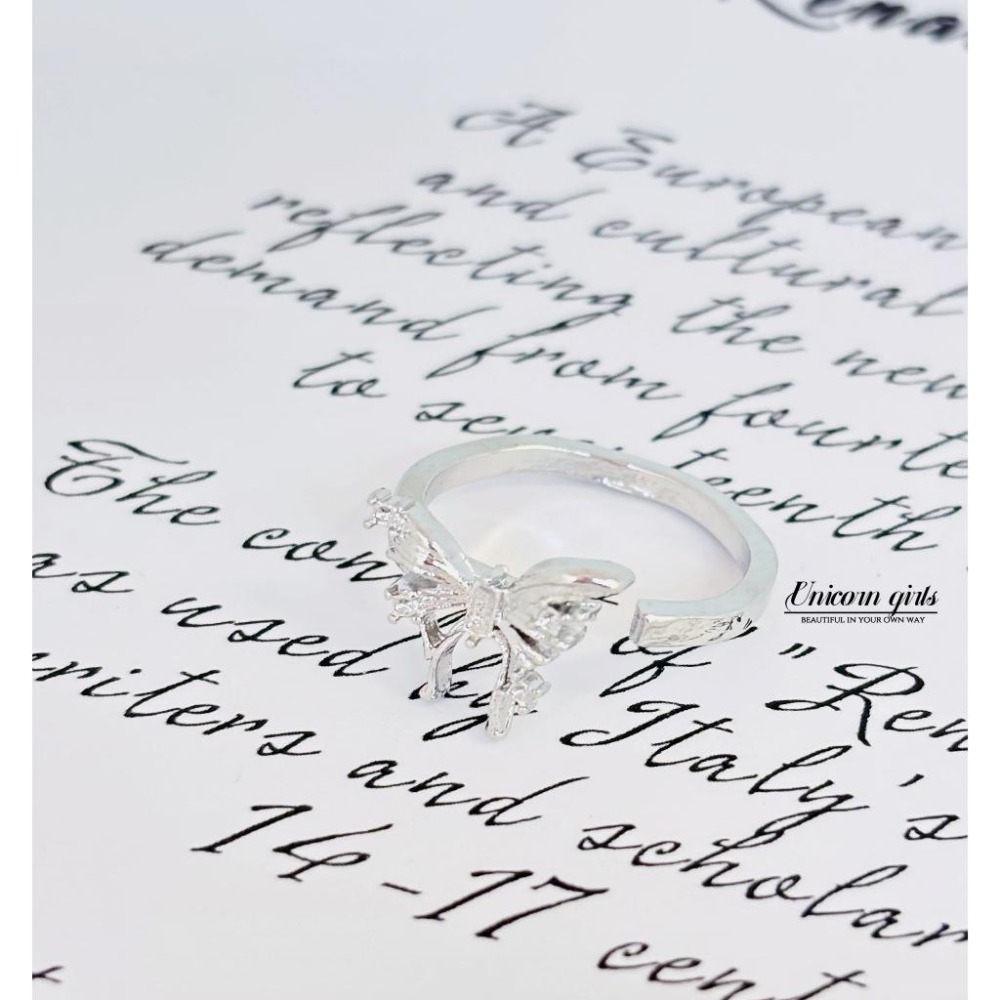 A European
and cultural
reflecting the new
demand from fourte
to seventeenth
The con
as used by of "Ren
writers and Italy's
14-17 scholar
cent
Unicorn girls
BEAUTIFUL IN YOUR OWN WAY